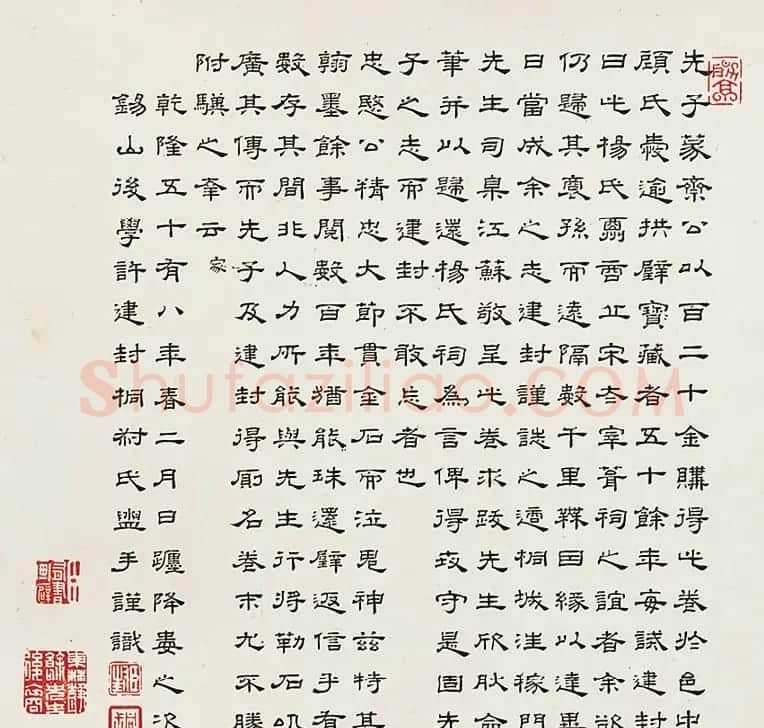 先子篆齋公以百二十金購得此卷於邑中
顧氏愛逾拱璧寶藏者五十餘年每誡建封
曰此揚氏宋宰葺祠之誼者余
仍歸其裔孫而遠隔數千里因緣以達畢
日當成余之志建封謹誌之適桐城汪稼門
先生司臬江蘇敬呈此卷求跋先生欣肰命
筆并以歸還揚氏祠為言俾得守是固先
子之志而建封不敢忘者也
忠愍公精忠大節貫金石而泣鬼神茲特其
翰墨餘事閱數百年猶能珠還璧返信乎有
數存其間非人力所能與先生行將勒石以
廣其傳而先子及建封得厠名卷末尤不勝
附驥之幸云
家
乾隆五十有八年春二月日躔降婁之次
錫山後學許建封桐村氏盥手謹識
Shufaziliao.COM